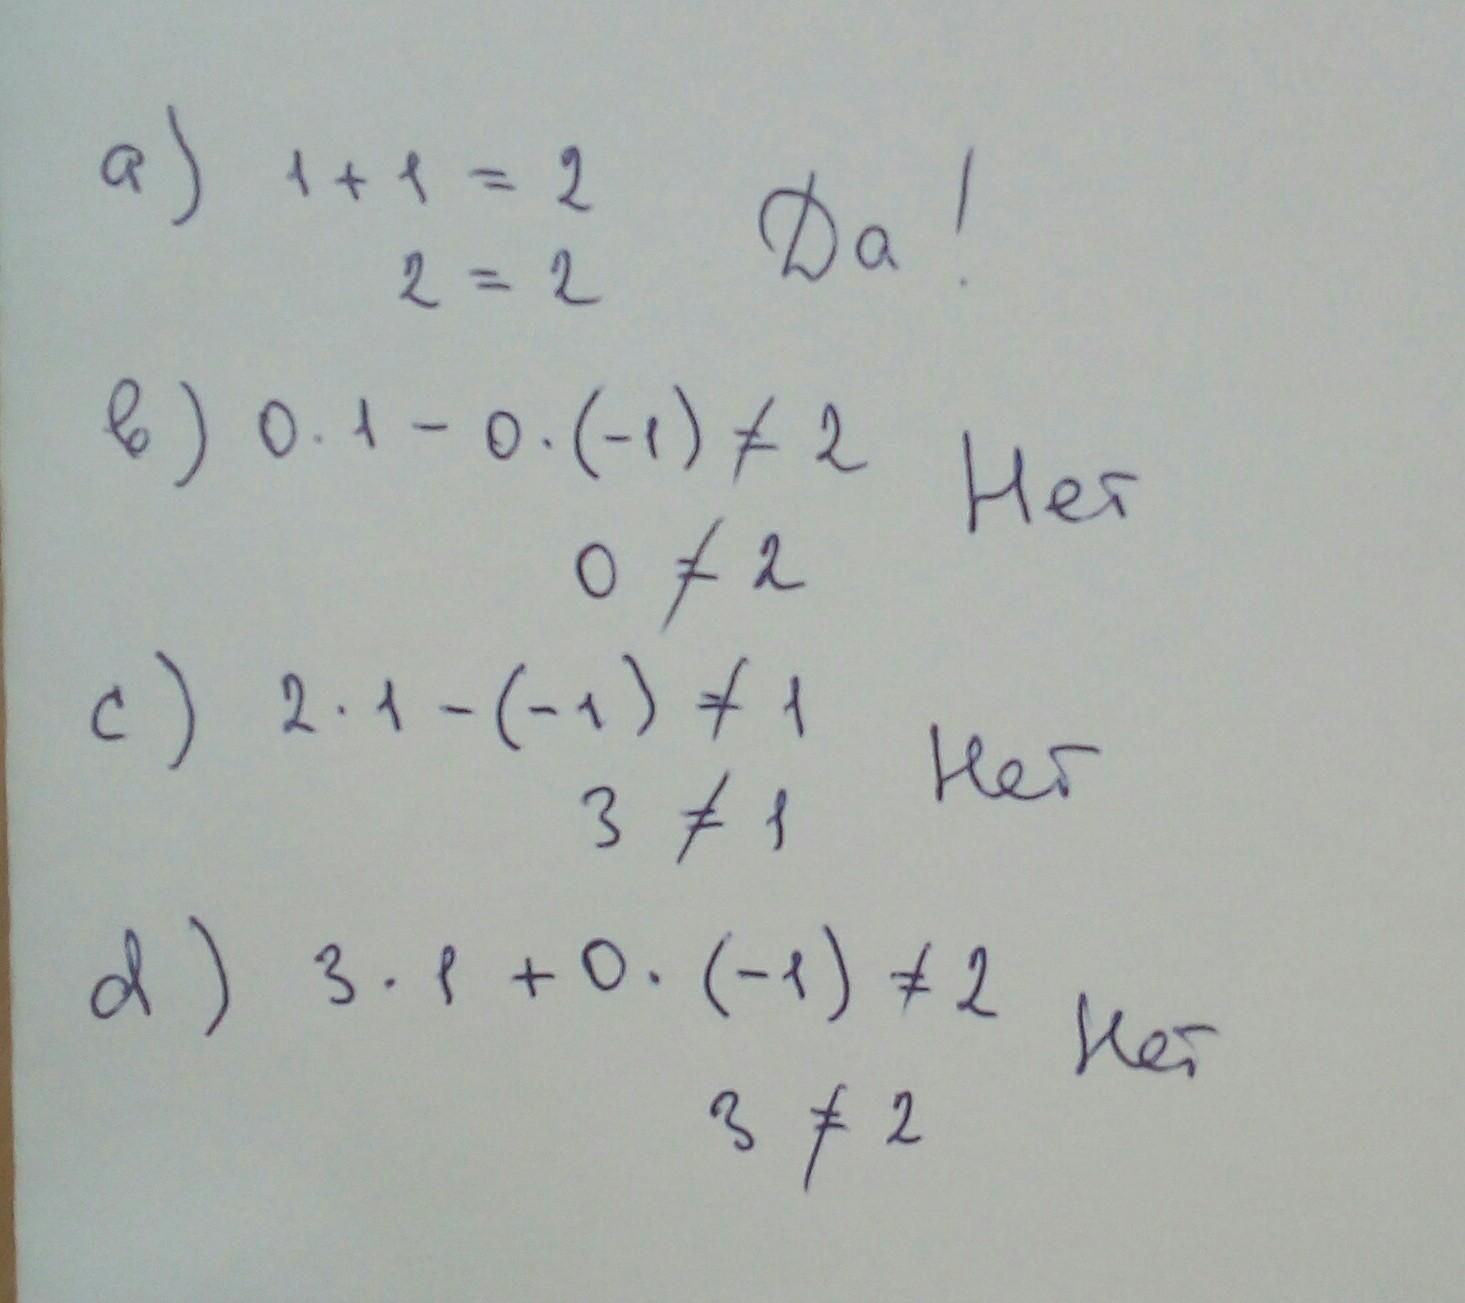 a) 1 + 1 = 2 Да!
2 = 2
b) 0 · 1 - 0 · (-1) ≠ 2 Нет
0 ≠ 2
c) 2 · 1 - (-1) ≠ 1 Нет
3 ≠ 1
d) 3 · 1 + 0 · (-1) ≠ 2 Нет
3 ≠ 2